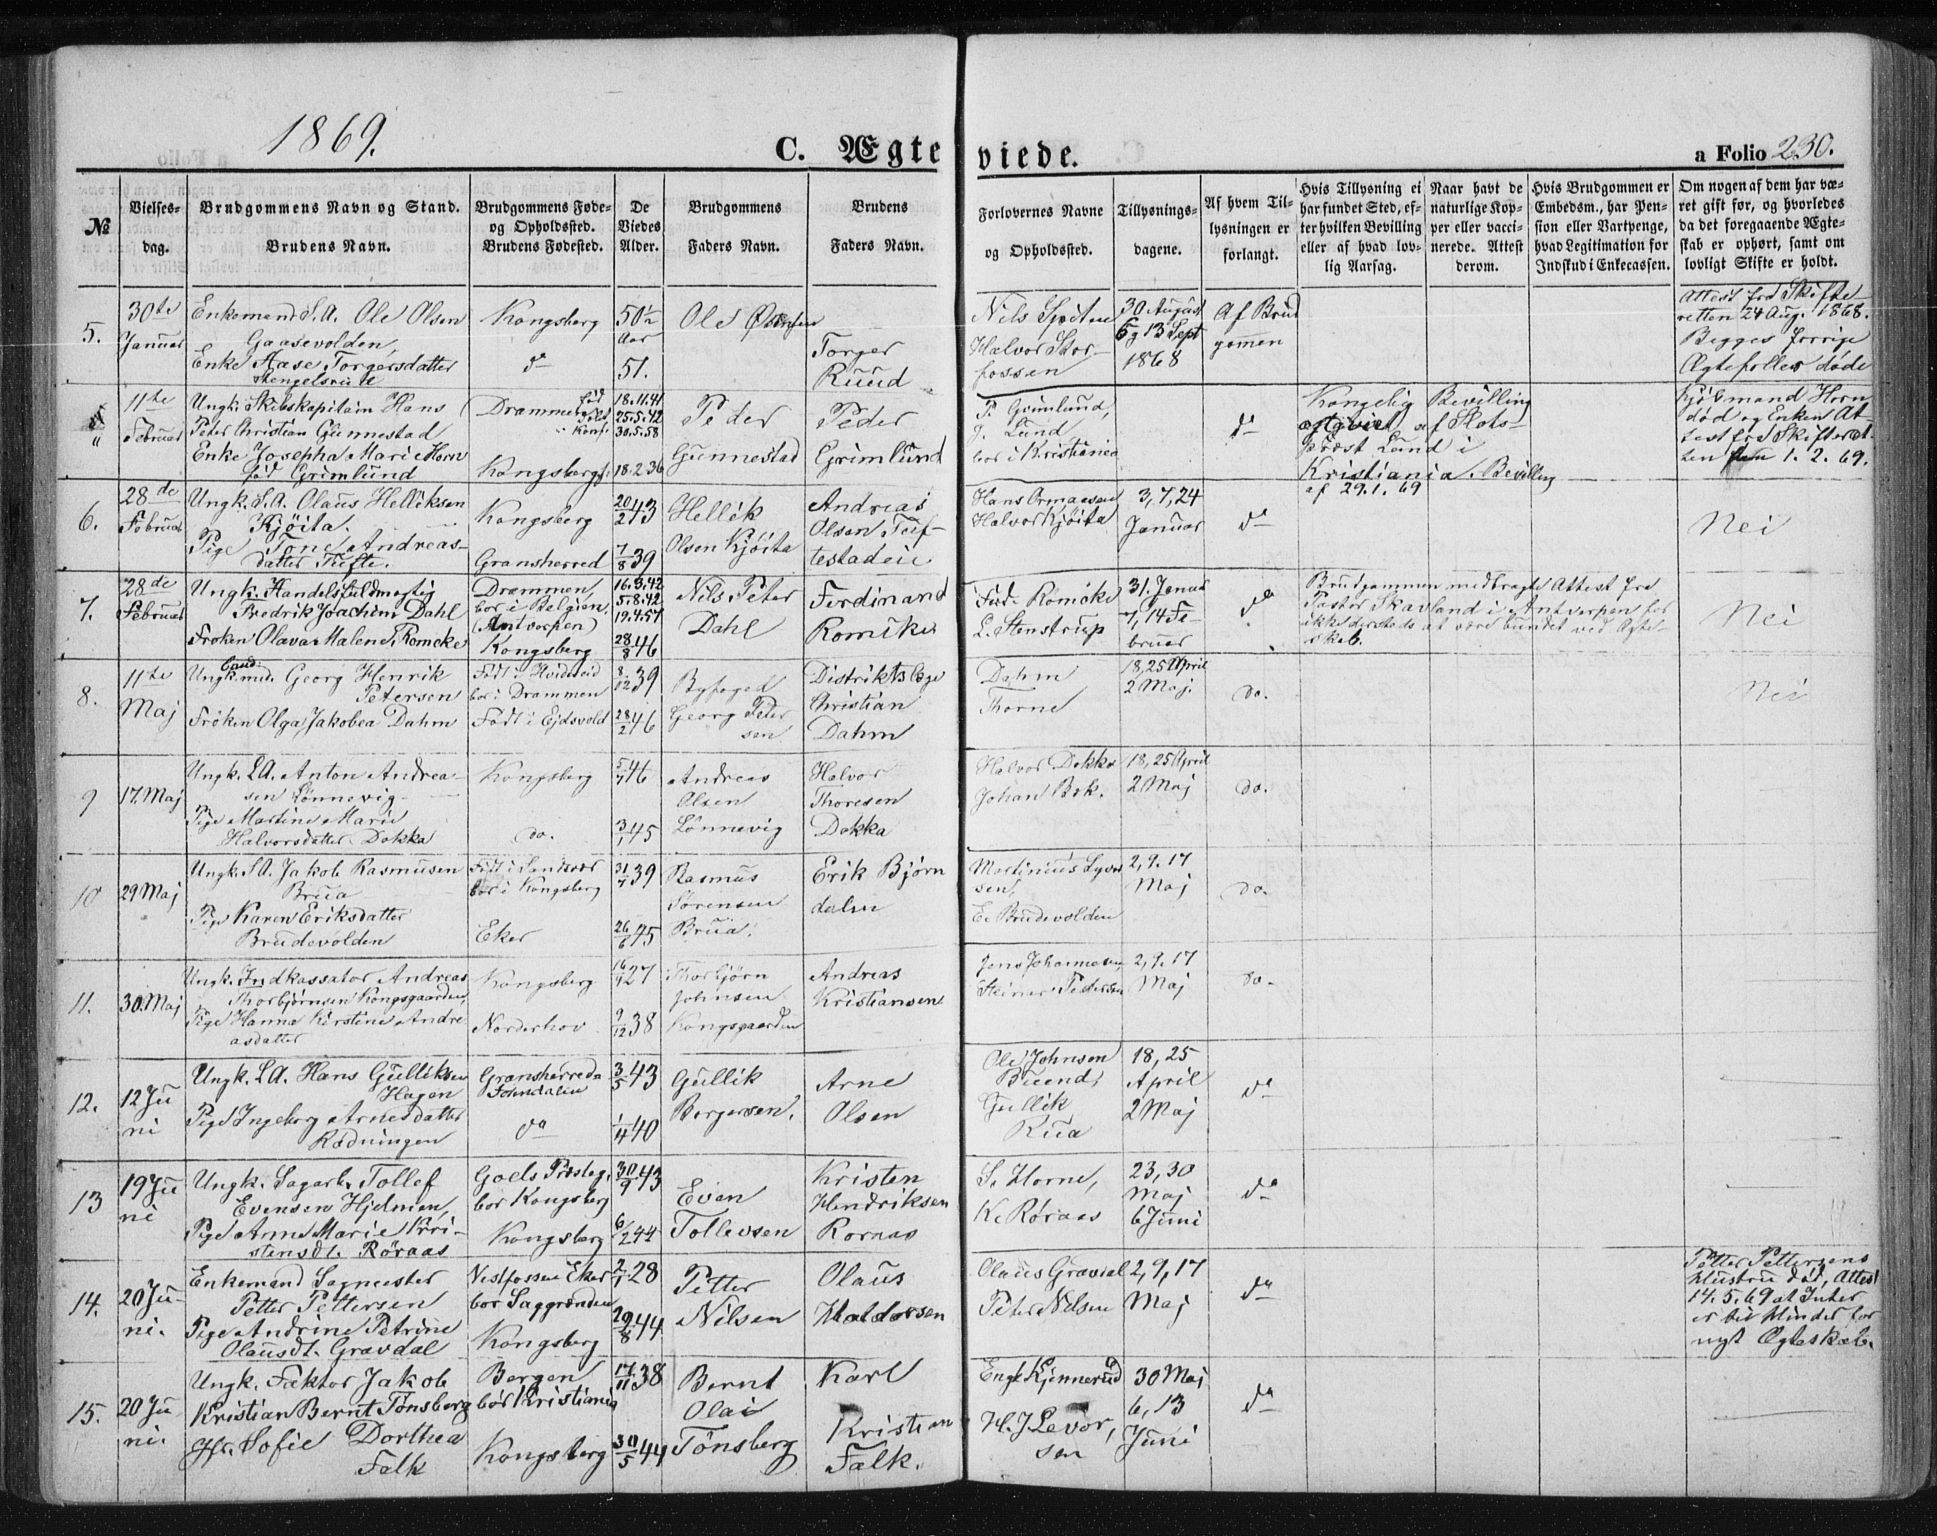 1869.
C. Ægteviede.
a Folio 230.
№
Vielses-
dag.
Brudgommens Navn og Stand.
Brudens Navn.
Brudgommens Føde-
og Opholdssted.
Brudens Fødested.
De
Viedes
Alder.
Brudgommens
Faders Navn.
Brudens
Faders Navn.
Forlovernes Navne
og Opholdssted.
Tillysnings-
dagene.
Af hvem Til-
lysningen er
forlangt.
Hvis Tillysning ei
har fundet Sted, ef-
ter hvilken Bevilling
eller af hvad lov-
lig Aarsag.
Naar havt de
naturlige Kop-
per eller vacci-
nerede. Attest
derom.
Hvis Brudgommen er
Embedsm., har Pen-
sion eller Vartpenge,
hvad Legitimation for
Indskud i Enkecassen.
Om nogen af dem har væ-
ret gift før, og hvorledes
da det foregaaende Ægte-
skab er ophørt, samt om
lovligt Skifte er holdt.
5.
30te
Januar
Enkemand S.A. Ole Olsen
Gaasevolden,
Enke Aase Torgersdatter
Stengelsrud
Kongsberg
do
50½
Aar
51.
Ole
Torger
Ruud
Nils Spiten
Halvor Stor-
fossen
30 August
6 g 13 Sept
1868
Af Brud
gomen
Attest fra Skifte
retten 24 Aug. 1868.
Begges forrige
Ægtefolles døde
"
11te
Februar
Ungk. Skibskapitain Hans
Peter Christian Gunnestad
Enke Josepha Marie Horn
fød Grimlund
Drammen
Konf.
Kongsberg
18.11.41
25.5.42
30.5.58
18.2.36
Peder
Gunnestad
Peder
Grimlund
P. Grimlund,
J. Lund
bor i Kristiania
do
Kongelig Bevilling
af Slots-
Prost Lund i
Kristiania. Bevilling
af 29.1.69
Kjöbmand Horn
död og Enken At
test fra Skifteret
ten 1.2.69.
6.
28de
Februar
Ungk. S.A. Olaus Helliksen
Kjöita.
Pige Tone Andreas-
datter Tufte.
Kongsberg
Gransherred
20/2 43
7/8 39
Hellik
Olsen Kjöita
Andreas
Olsen Tuf-
testadeie
Hans Ormaasen
Halvor Kjöita
3, 7, 24
Januar
do
Nei
7.
28de
Februar
Ungk. Handelsfuldmegtig
Fredrik Joachim Dahl
Fröken Olava Malene Romcke
Drammen,
bor i Belgien,
(Antverpen)
Kongsberg
16.3.42
5.8.42
19.4.57
28/8 46
Nils Peter
Dahl
Ferdinand
Romcke
Ferd. Romcke
L. Stenstrup
31. Januar
7, 14 Fe-
bruar
do
Brudgommen medbragte Attest fra
Pastor Skavland i Antverpen for
ikke dersteds at være bundet ved Ægte-
skab.
Nei
8.
11te
Maj
Ungk. Cand. med. Georg Henrik
Petersen
Fröken Olga Jakobea Dahm
Födt i Hvideseid
bor i Drammen
Födt i Ejdsvold
8/12 39
28/2 46
Byfoged
Georg Peter
sen
Distriktslæge
Christian
Dahm
Dahm
Thorne
18, 25 April
2 Maj.
do.
Nei
9
17. Maj
Ungk. L.A. Anton Andrea-
sen Lönnevig
Pige Martine Marie
Halvorsdatter Dokka
Kongsberg
do.
5/7 46
3/1 45
Andreas
Olsen
Lönnevig
Halvor
Thoresen
Dokka
Halvor Dokka
Johan Bek.
18, 25 April
2 Maj
do.
10
29 Maj
Ungk. S.A. Jakob Rasmusen
Brua
Pige Karen Eriksdatter
Brudevolden
Födt i Sandsvær
bor i Kongsberg
Eker
31/7 39
26/6 45
Rasmus
Sörensen
Brua.
Erik Bjørn
dalen
Martinius Syver
sen,
E. Brudevolden
2, 9. 17
Maj
do.
11.
30. Maj
Ungk. Indkassator Andreas
Thorbjörnsen Kongsgaarden,
Pige Hanna Kirstine Andre
asdatter
Kongsberg
Norderhov
16/4 27
9/12 38
Thorbjörn
Johnsen
Kongsgaarden
Andreas
Kristiansen
Jens Johannesen,
Steiner Pedersen
2, 9. 17
Maj
do.
12.
12 Ju
ni
Ungk. L.A. Hans Gulliksen
Hagen
Pige Ingeborg Arnesdatter
Rodningen
Gransherred
Jondalen
do
3/5 43
1/4 40
Gullik
Bergersen.
Arne
Olsen
Ole Johnsen
Gullik
Rua
18, 25
April
2 Maj
do
13
19 Ju
ni
Ungk. Sagarb. Tollef
Evensen Hjelmen,
Pige Anne Marie Kri-
stensdt. Röraas
Goels Prestg.
bor Kongsberg
Kongsberg
30/9 43
6/2 44
Even
Tollevsen
Kristen
Hendriksen
Roraas
S. Horne,
K. Röraas
23, 30
Maj
6 Juni
do
14.
20 Ju-
ni.
Enkemand Sagmester
Petter Pettersen
Pige Andrine Petrine
Olausdt. Gravdal
Vestfossen Eker
bor Saggrenden
Kongsberg
2/1 28
29/8 44
Petter
Nilsen
Olaus
Haldorsen
Olaus Gravdal
Peter Nilsen
2, 9, 17
Maj
do
Petter Pettersens
Hustru död, Attest
14.5.69 at Intet
er til Hinder for
nyt Ægteskab.
15.
20 Ju-
ni.
Ungk. Faktor Jakob
Kristian Bernt Tönsberg
Jfr. Sofie Dorthea
Falk
Bergen
bor Kristiania
Kongsberg
17/11 38
30/5 44
Bernt
Olai
Tönsberg
Karl
Kristian
Falk.
Enge Kjennerud
H. J. Levor,
sen
30 Maj
6, 13
Juni
do